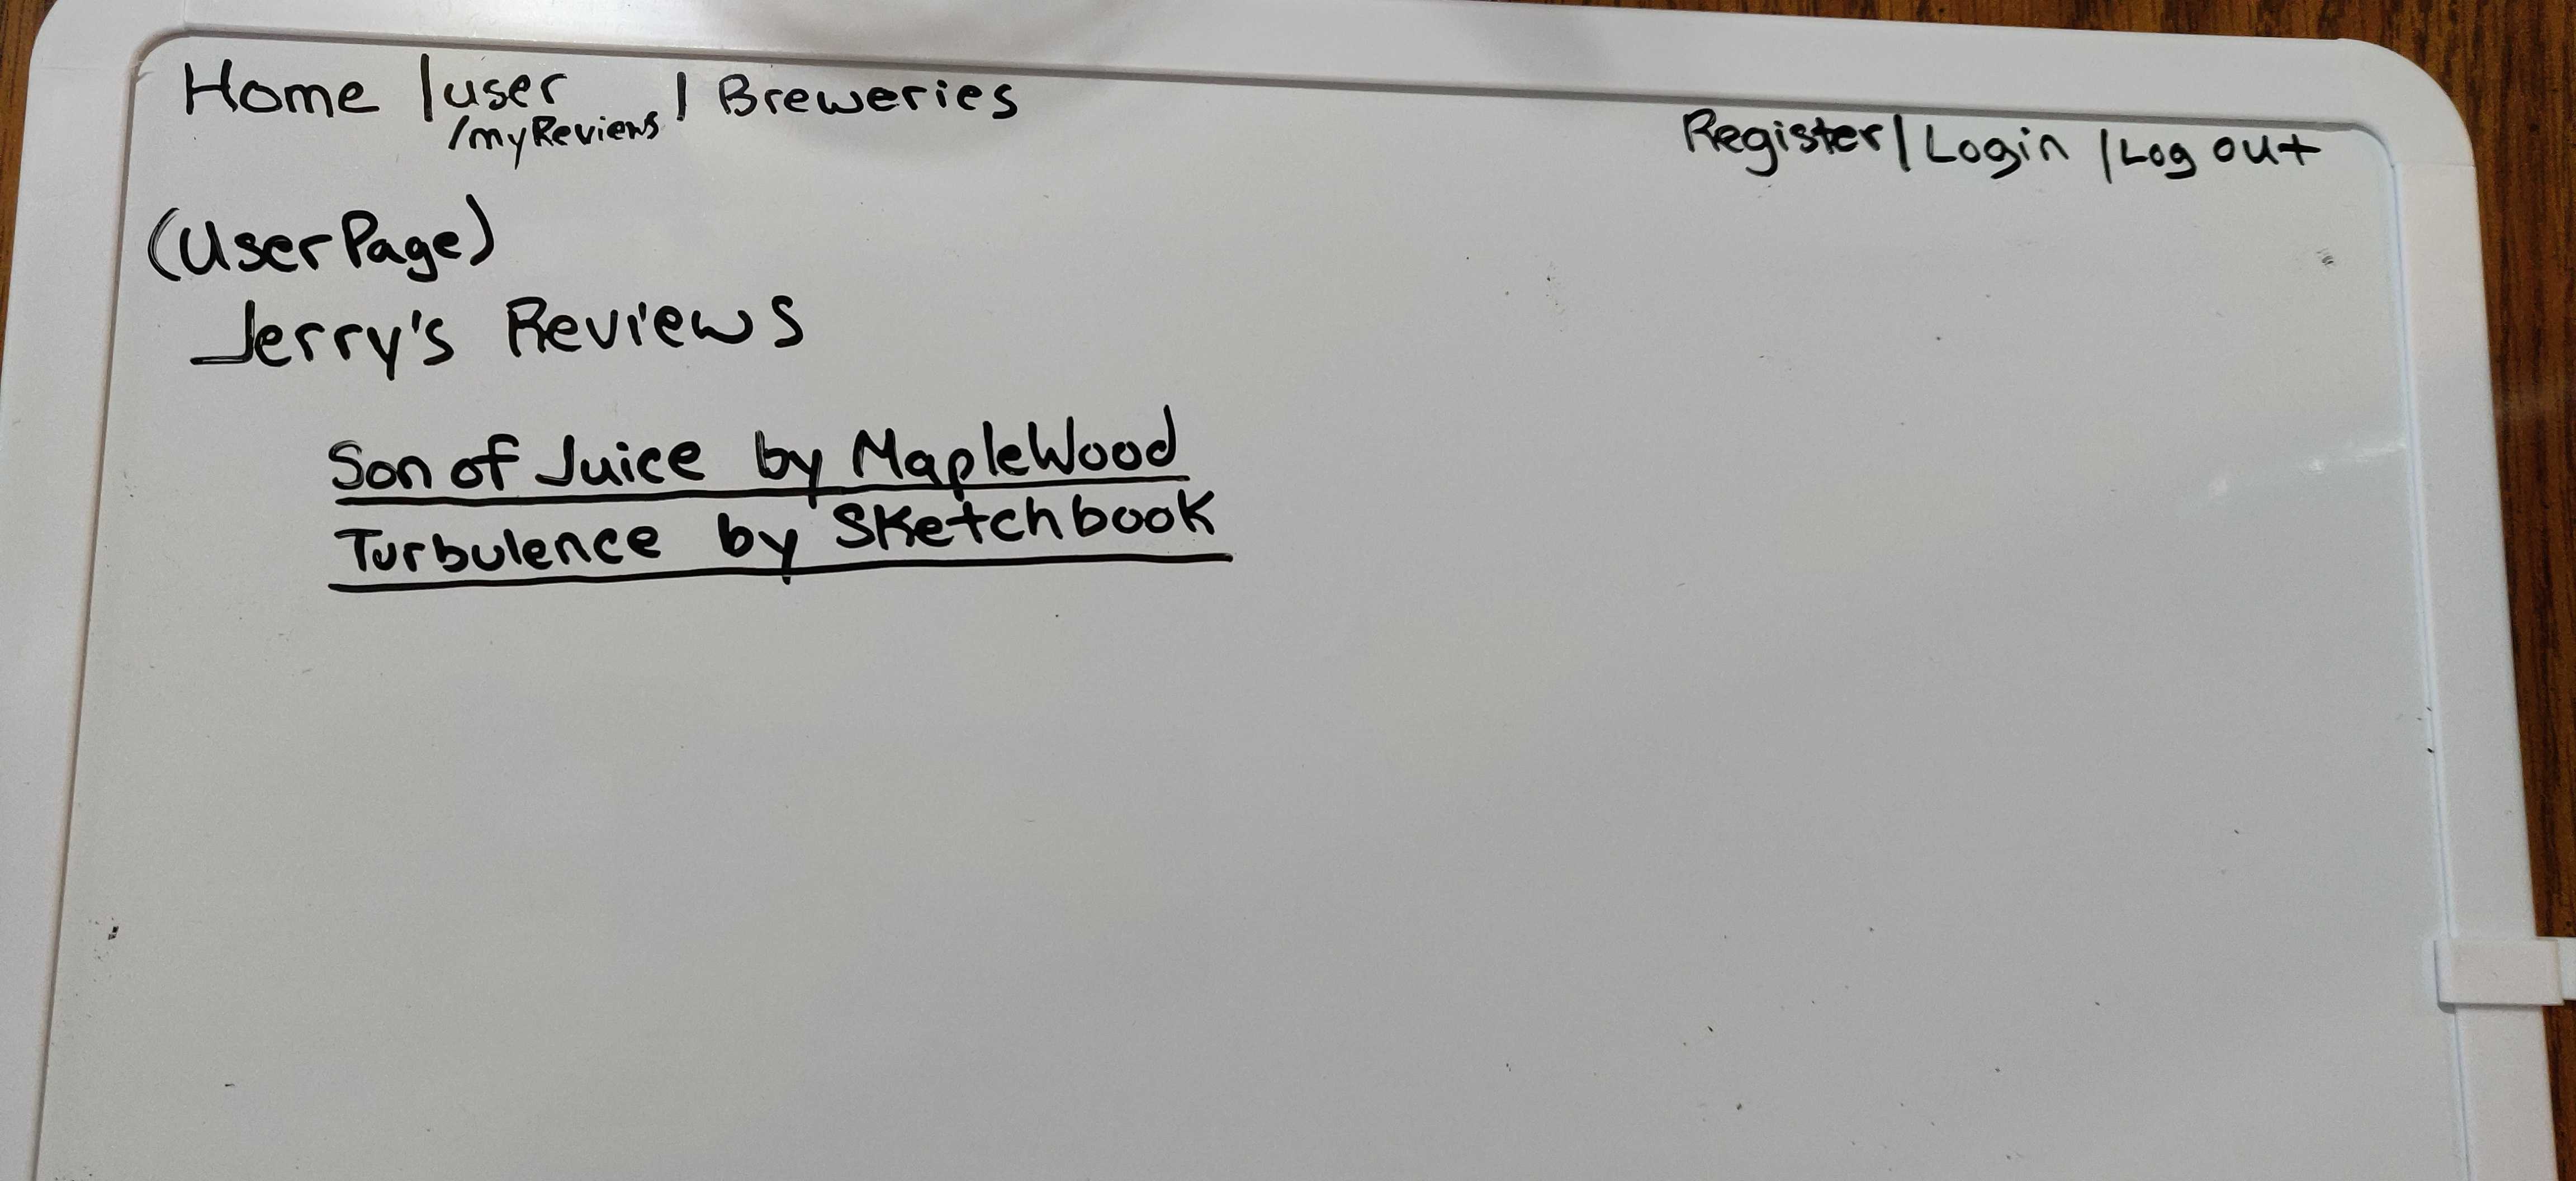 Home | user | Breweries
/myReviews
Register | Login | Log out
(User Page)
Jerry's Reviews
Son of Juice by MapleWood
Turbulence by Sketchbook